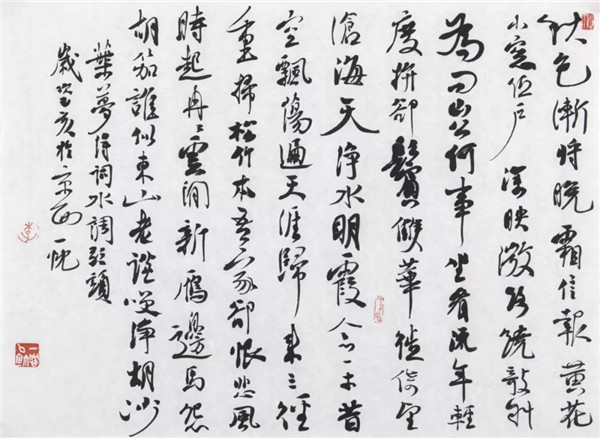 秋色漸將晚霜信報黃花
小窗低戶深映微路繞敧斜
為問山公何事坐看流年輕
度拚卻鬢雙華徙倚望
滄海天淨水明霞念平昔
空飄蕩遍天涯歸來三徑
重掃松竹本吾家卻恨悲風
時起冉冉雲間新雁邊馬怨
胡笳誰似東山老談笑淨胡沙
葉夢得詞水調歌頭
歲亥於京西一